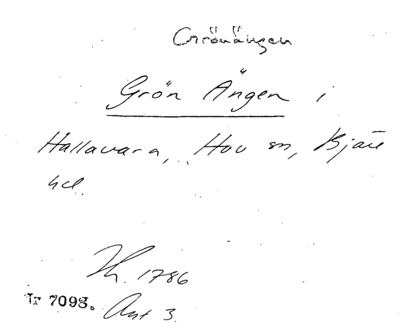 Grönängen
Grön Ängen i
Hallavara, Hov sn, Bjäre
hd.
Th. 1786
Ir 7098. Akt 3.